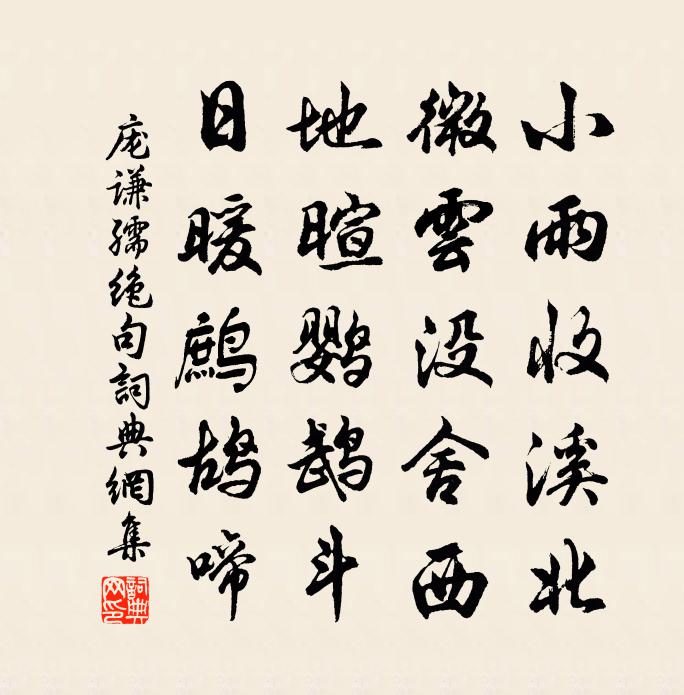 小雨收溪北
微雲没舍西
地暄鹦鹉斗
日暖鹧鸪啼
庞谦孺绝句詞典網集
詞典
网印